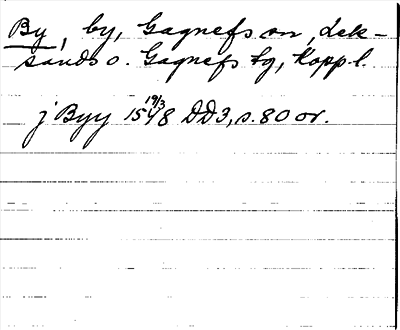 By, by, Gagnefs sn, Lek-
sands o. Gagnefs tg, Kopp l.
j Byy 15 19/3 48 DD3, s. 80 or.